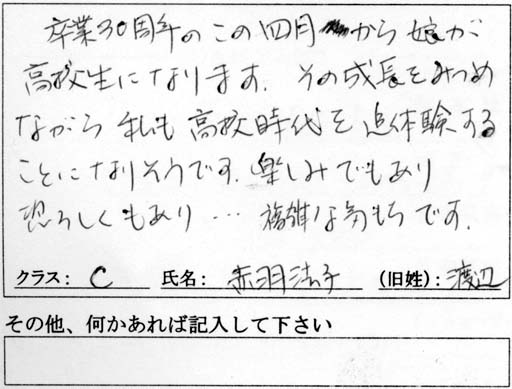 卒業30周年のこの四月から娘が
高校生になります。その成長をみつめ
ながら私も高校時代を追体験する
ことになりそうです。楽しみでもあり
恐ろしくもあり…複雑な気もちです。
クラス: C 氏名: 赤羽法子 (旧姓): 渡辺
その他、何かあれば記入して下さい